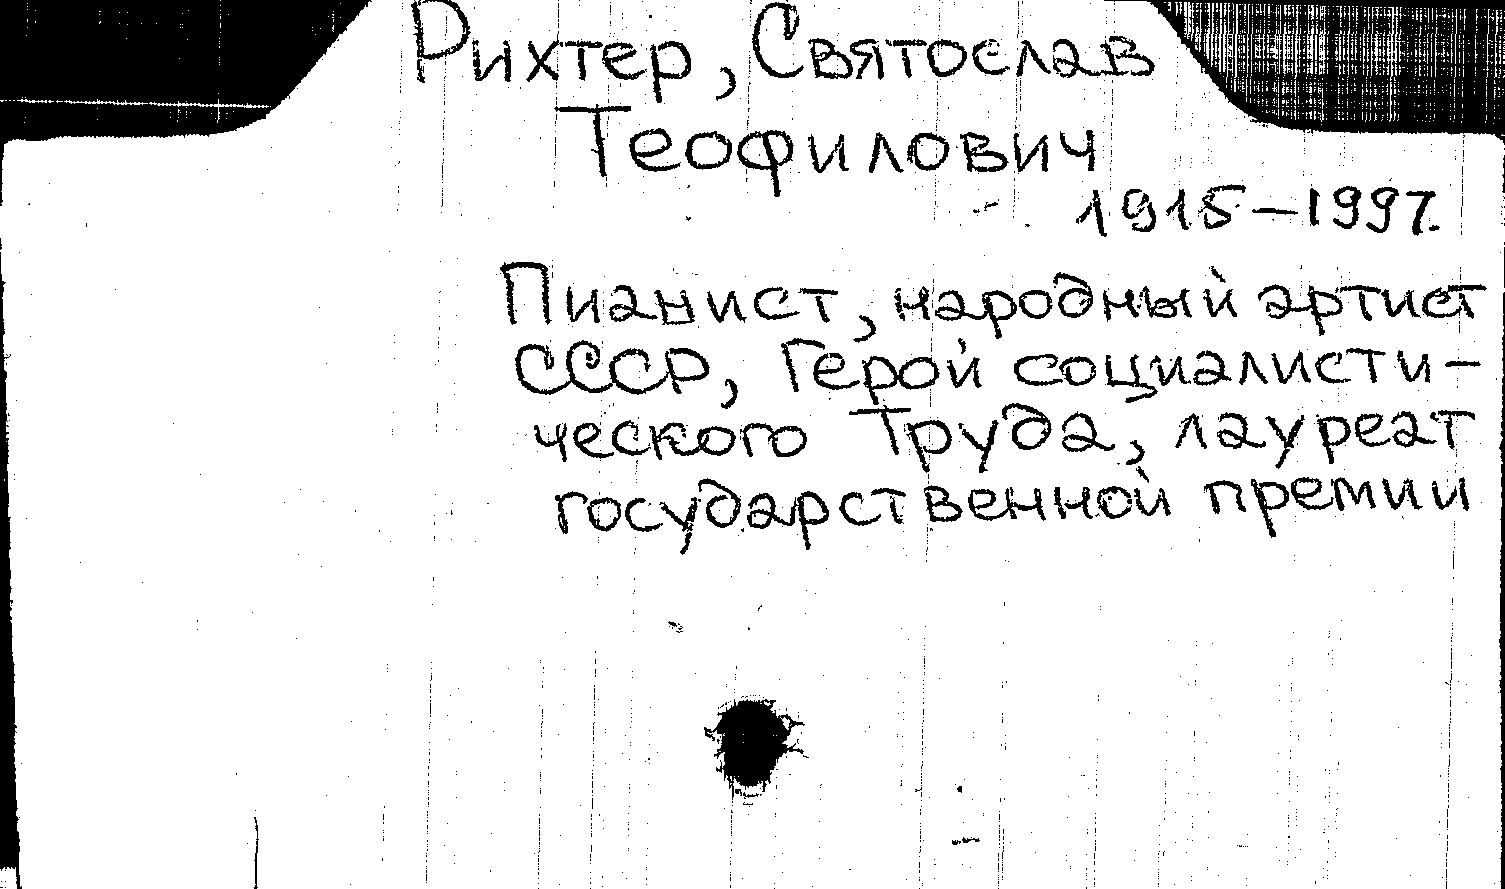 Рихтер, Святослав
Теофилович
1915–1997.
Пианист, народный артист
СССР, Герой социалисти-
ческого Труда, лауреат
государственной премии